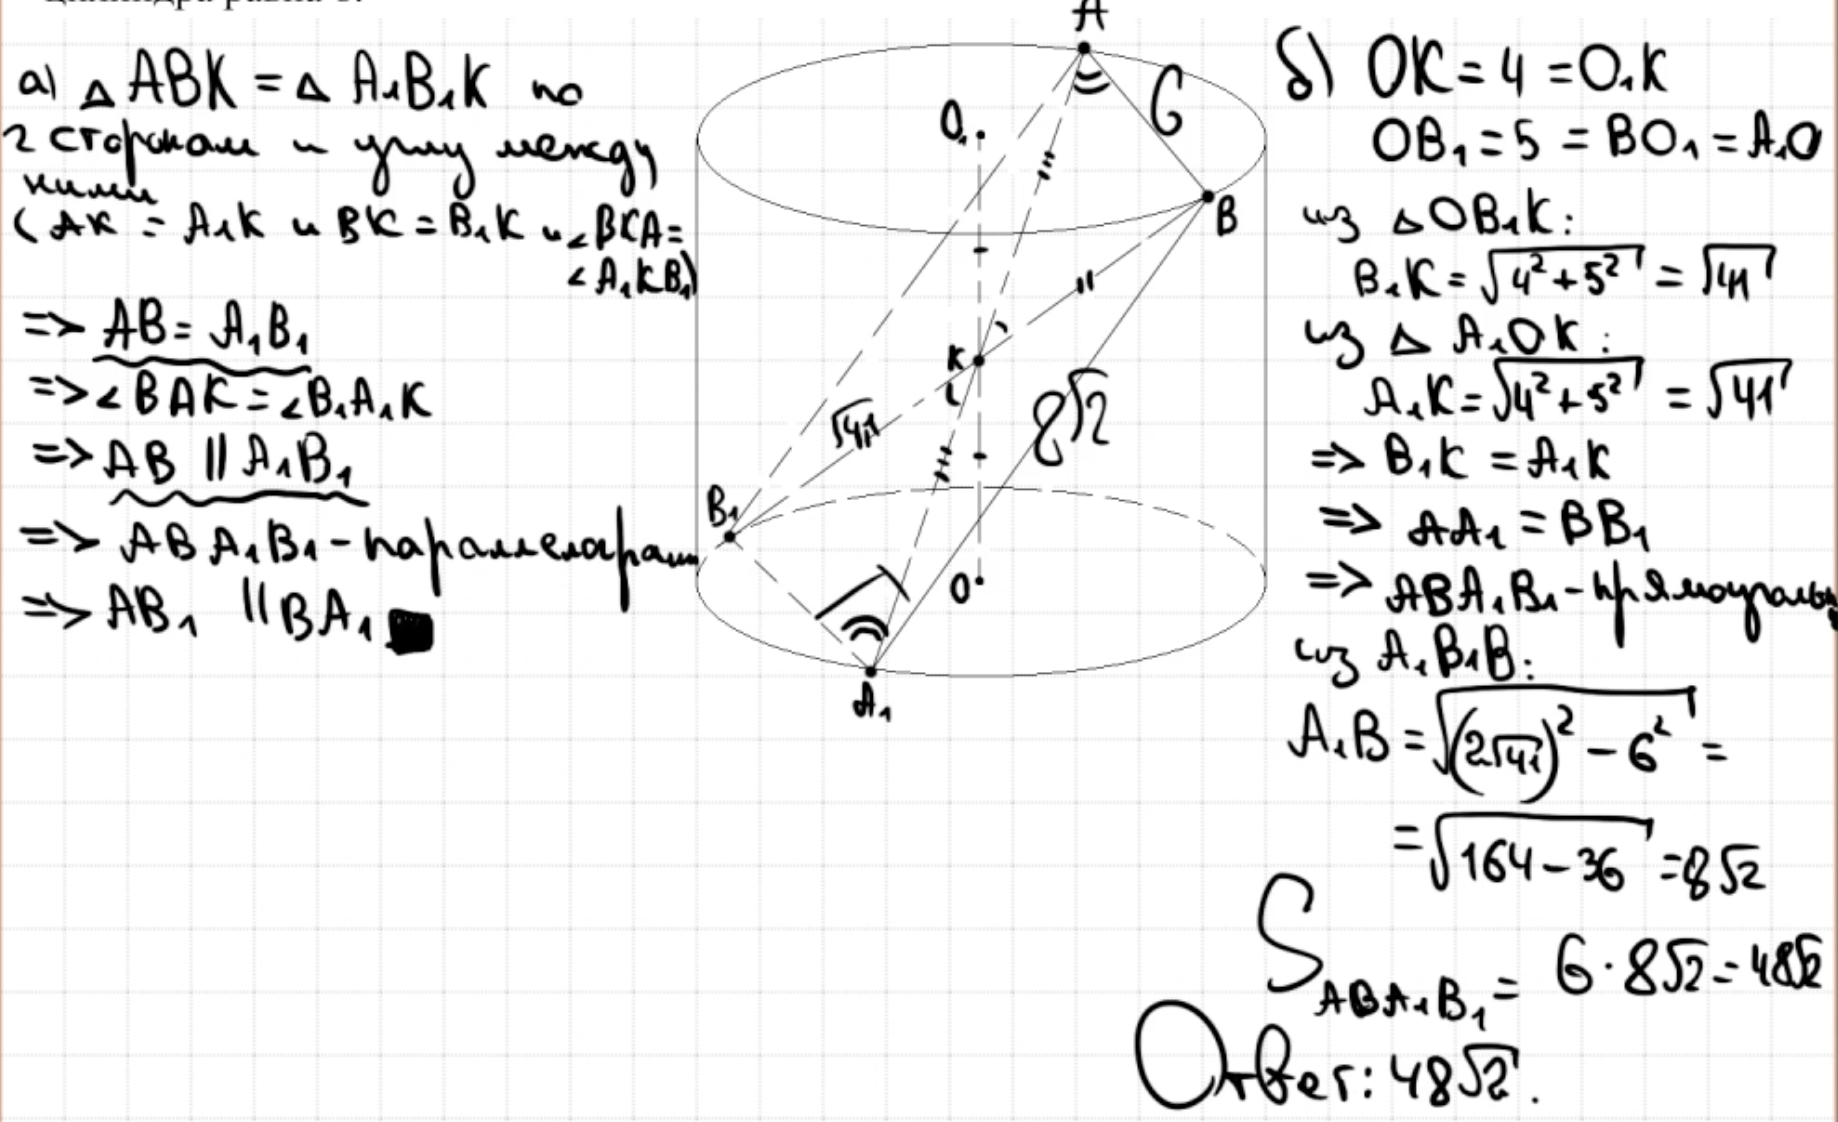 цилиндра равна 8.
а) △ ABK = △ A₁B₁K по
2 сторонам и углу между
ними
(AK = A₁K и BK = B₁K и ∠BKA =
∠A₁KB₁)
=> AB = A₁B₁
=> ∠BAK = ∠B₁A₁K
=> AB || A₁B₁
=> ABA₁B₁ - параллелограмм
=> AB₁ || BA₁
A
6
O₁
B
K
√41
8√2
B₁
O
A₁
б) OK = 4 = O₁K
OB₁ = 5 = BO₁ = A₁O
из △OB₁K:
B₁K = √4² + 5² = √41
из △ A₁OK:
A₁K = √4² + 5² = √41
=> B₁K = A₁K
=> AA₁ = BB₁
=> ABA₁B₁ -
из A₁B₁B:
A₁B = √(2√41)² - 6² =
= √164 - 36 = 8√2
S ABA₁B₁ = 6 · 8√2 = 48√2
Ответ: 48√2.